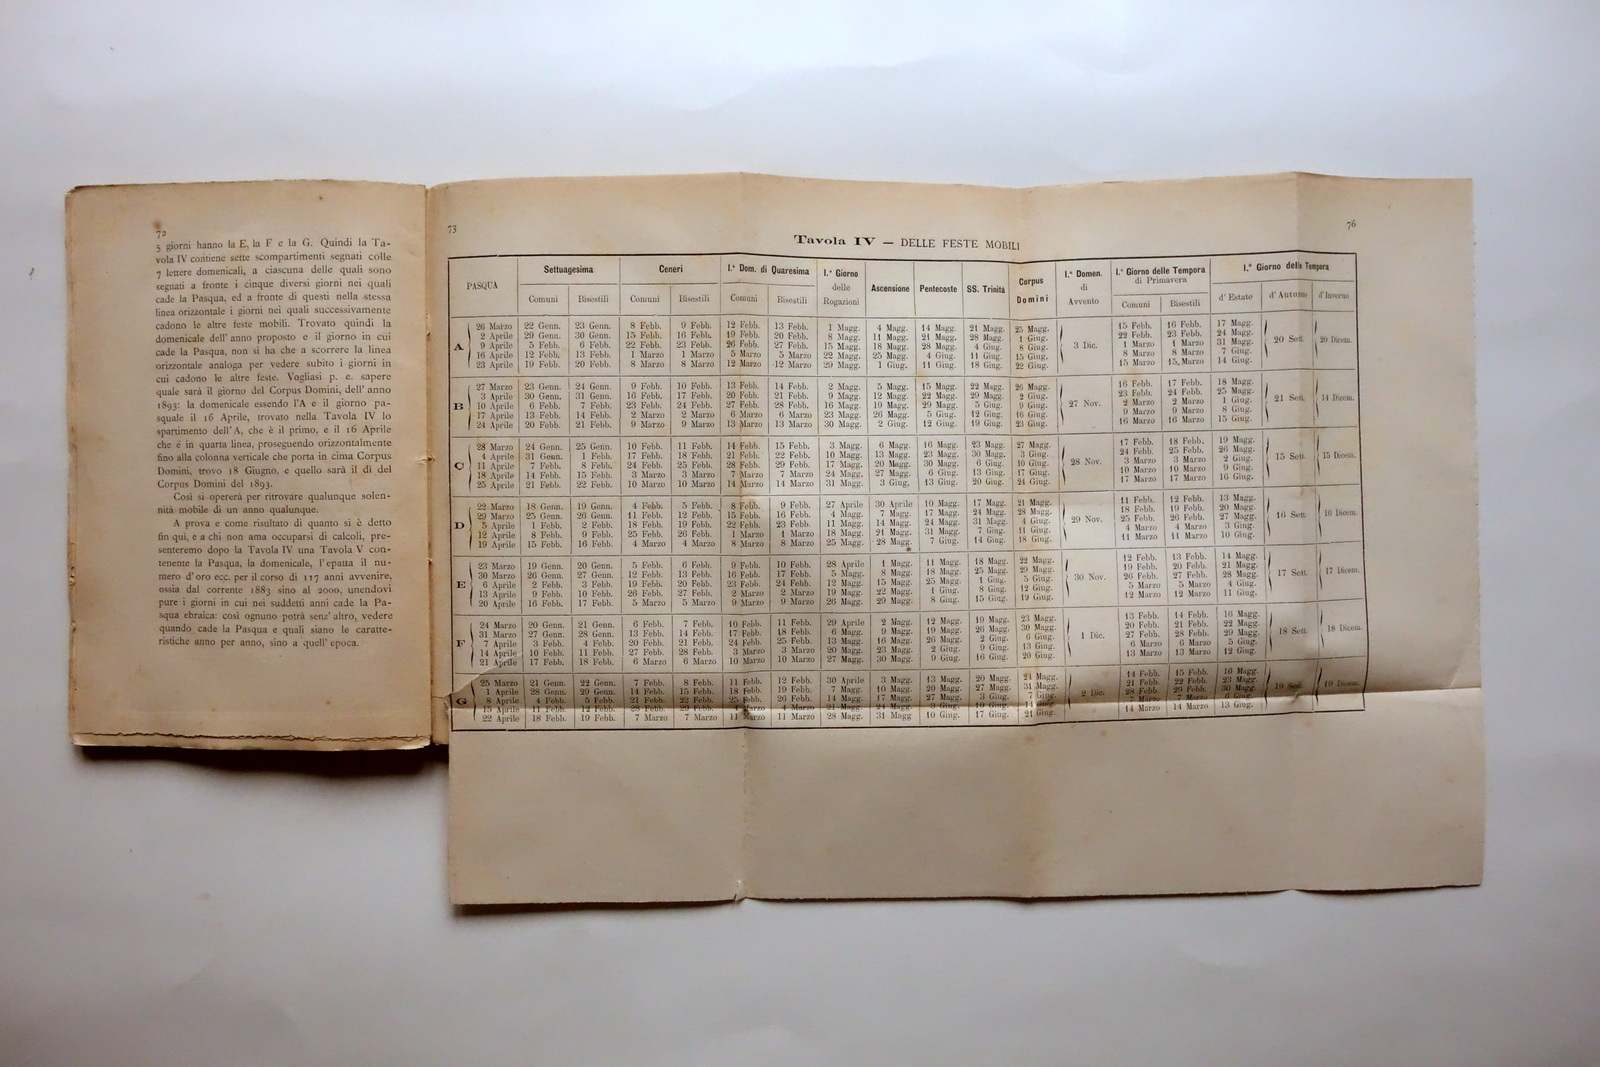 72
5 giorni hanno la E, la F e la G. Quindi la Ta-
vola IV contiene sette scompartimenti segnati colle
7 lettere domenicali, a ciascuna delle quali sono
segnati a fronte i cinque diversi giorni nei quali
cade la Pasqua, ed a fronte di questi nella stessa
linea orizzontale i giorni nei quali successivamente
cadono le altre feste mobili. Trovato quindi la
domenicale dell' anno proposto e il giorno in cui
cade la Pasqua, non si ha che a scorrere la linea
orizzontale analoga per vedere subito i giorni in
cui cadono le altre feste. Vogliasi p. e. sapere
quale sarà il giorno del Corpus Domini, dell' anno
1893: la domenicale essendo l'A e il giorno pa-
squale il 16 Aprile, trovato nella Tavola IV lo
spartimento dell'A, che è il primo, e il 16 Aprile
che é in quarta linea, proseguendo orizzontalmente
fino alla colonna verticale che porta in cima Corpus
Domini, trovo 18 Giugno, e quello sarà il dì del
Corpus Domini del 1893.
Così si opererà per ritrovare qualunque solen-
nità mobile di un anno qualunque.
A prova e come risultato di quanto si è detto
fin quì, e a chi non ama occuparsi di calcoli, pre-
senteremo dopo la Tavola IV una Tavola V con-
tenente la Pasqua, la domenicale, l'epatta il nu-
mero d'oro ecc. per il corso di 117 anni avvenire,
ossia dal corrente 1883 sino al 2000, unendovi
pure i giorni in cui nei suddetti anni cade la Pa-
squa ebraica: così ognuno potrà senz' altro, vedere
quando cade la Pasqua e quali siano le caratte-
ristiche anno per anno, sino a quell' epoca.
73
76
Tavola IV — DELLE FESTE MOBILI
PASQUA Settuagesima Ceneri I.ª Dom. di Quaresima I.º Giorno delle Rogazioni Ascensione Pentecoste SS. Trinità Corpus Domini I.ª Domen. di Avvento I.º Giorno delle Tempora di Primavera I.º Giorno delle Tempora
Comuni Bisestili Comuni Bisestili Comuni Bisestili Comuni Bisestili d' Estate d' Autunno d'Inverno
A 26 Marzo 22 Genn. 23 Genn. 8 Febb. 9 Febb. 12 Febb. 13 Febb. 1 Magg. 4 Magg. 14 Magg. 21 Magg. 25 Magg. 3 Dic. 15 Febb. 16 Febb. 17 Magg. 20 Sett. 20 Dicem.
2 Aprile 29 Genn. 30 Genn. 15 Febb. 16 Febb. 19 Febb. 20 Febb. 8 Magg. 11 Magg. 21 Magg. 28 Magg. 1 Giug. 22 Febb. 23 Febb. 24 Magg.
9 Aprile 5 Febb. 6 Febb. 22 Febb. 23 Febb. 26 Febb. 27 Febb. 15 Magg. 18 Magg. 28 Magg. 4 Giug. 8 Giug. 1 Marzo 1 Marzo 31 Magg.
16 Aprile 12 Febb. 13 Febb. 1 Marzo 1 Marzo 5 Marzo 5 Marzo 22 Magg. 25 Magg. 4 Giug. 11 Giug. 15 Giug. 8 Marzo 8 Marzo 7 Giug.
23 Aprile 19 Febb. 20 Febb. 8 Marzo 8 Marzo 12 Marzo 12 Marzo 29 Magg. 1 Giug. 11 Giug. 18 Giug. 22 Giug. 15 Marzo 15 Marzo 14 Giug.
B 27 Marzo 23 Genn. 24 Genn. 9 Febb. 10 Febb. 13 Febb. 14 Febb. 2 Magg. 5 Magg. 15 Magg. 22 Magg. 26 Magg. 27 Nov. 16 Febb. 17 Febb. 18 Magg. 21 Sett. 14 Dicem.
3 Aprile 30 Genn. 31 Genn. 16 Febb. 17 Febb. 20 Febb. 21 Febb. 9 Magg. 12 Magg. 22 Magg. 29 Magg. 2 Giug. 23 Febb. 24 Febb. 25 Magg.
10 Aprile 6 Febb. 7 Febb. 23 Febb. 24 Febb. 27 Febb. 28 Febb. 16 Magg. 19 Magg. 29 Magg. 5 Giug. 9 Giug. 2 Marzo 2 Marzo 1 Giug.
17 Aprile 13 Febb. 14 Febb. 2 Marzo 2 Marzo 6 Marzo 6 Marzo 23 Magg. 26 Magg. 5 Giug. 12 Giug. 16 Giug. 9 Marzo 9 Marzo 8 Giug.
24 Aprile 20 Febb. 21 Febb. 9 Marzo 9 Marzo 13 Marzo 13 Marzo 30 Magg. 2 Giug. 12 Giug. 19 Giug. 23 Giug. 16 Marzo 16 Marzo 15 Giug.
C 28 Marzo 24 Genn. 25 Genn. 10 Febb. 11 Febb. 14 Febb. 15 Febb. 3 Magg. 6 Magg. 16 Magg. 23 Magg. 27 Magg. 28 Nov. 17 Febb. 18 Febb. 19 Magg. 15 Sett. 15 Dicem.
4 Aprile 31 Genn. 1 Febb. 17 Febb. 18 Febb. 21 Febb. 22 Febb. 10 Magg. 13 Magg. 23 Magg. 30 Magg. 3 Giug. 24 Febb. 25 Febb. 26 Magg.
11 Aprile 7 Febb. 8 Febb. 24 Febb. 25 Febb. 28 Febb. 29 Febb. 17 Magg. 20 Magg. 30 Magg. 6 Giug. 10 Giug. 3 Marzo 3 Marzo 2 Giug.
18 Aprile 14 Febb. 15 Febb. 3 Marzo 3 Marzo 7 Marzo 7 Marzo 24 Magg. 27 Magg. 6 Giug. 13 Giug. 17 Giug. 10 Marzo 10 Marzo 9 Giug.
25 Aprile 21 Febb. 22 Febb. 10 Marzo 10 Marzo 14 Marzo 14 Marzo 31 Magg. 3 Giug. 13 Giug. 20 Giug. 24 Giug. 17 Marzo 17 Marzo 16 Giug.
D 22 Marzo 18 Genn. 19 Genn. 4 Febb. 5 Febb. 8 Febb. 9 Febb. 27 Aprile 30 Aprile 10 Magg. 17 Magg. 21 Magg. 29 Nov. 11 Febb. 12 Febb. 13 Magg. 16 Sett. 16 Dicem.
29 Marzo 25 Genn. 26 Genn. 11 Febb. 12 Febb. 15 Febb. 16 Febb. 4 Magg. 7 Magg. 17 Magg. 24 Magg. 28 Magg. 18 Febb. 19 Febb. 20 Magg.
5 Aprile 1 Febb. 2 Febb. 18 Febb. 19 Febb. 22 Febb. 23 Febb. 11 Magg. 14 Magg. 24 Magg. 31 Magg. 4 Giug. 25 Febb. 26 Febb. 27 Magg.
12 Aprile 8 Febb. 9 Febb. 25 Febb. 26 Febb. 1 Marzo 1 Marzo 18 Magg. 21 Magg. 31 Magg. 7 Giug. 11 Giug. 4 Marzo 4 Marzo 3 Giug.
19 Aprile 15 Febb. 16 Febb. 4 Marzo 4 Marzo 8 Marzo 8 Marzo 25 Magg. 28 Magg. 7 Giug. 14 Giug. 18 Giug. 11 Marzo 11 Marzo 10 Giug.
E 23 Marzo 19 Genn. 20 Genn. 5 Febb. 6 Febb. 9 Febb. 10 Febb. 28 Aprile 1 Magg. 11 Magg. 18 Magg. 22 Magg. 30 Nov. 12 Febb. 13 Febb. 14 Magg. 17 Sett. 17 Dicem.
30 Marzo 26 Genn. 27 Genn. 12 Febb. 13 Febb. 16 Febb. 17 Febb. 5 Magg. 8 Magg. 18 Magg. 25 Magg. 29 Magg. 19 Febb. 20 Febb. 21 Magg.
6 Aprile 2 Febb. 3 Febb. 19 Febb. 20 Febb. 23 Febb. 24 Febb. 12 Magg. 15 Magg. 25 Magg. 1 Giug. 5 Giug. 26 Febb. 27 Febb. 28 Magg.
13 Aprile 9 Febb. 10 Febb. 26 Febb. 27 Febb. 2 Marzo 2 Marzo 19 Magg. 22 Magg. 1 Giug. 8 Giug. 12 Giug. 5 Marzo 5 Marzo 4 Giug.
20 Aprile 16 Febb. 17 Febb. 5 Marzo 5 Marzo 9 Marzo 9 Marzo 26 Magg. 29 Magg. 8 Giug. 15 Giug. 19 Giug. 12 Marzo 12 Marzo 11 Giug.
F 24 Marzo 20 Genn. 21 Genn. 6 Febb. 7 Febb. 10 Febb. 11 Febb. 29 Aprile 2 Magg. 12 Magg. 19 Magg. 23 Magg. 1 Dic. 13 Febb. 14 Febb. 16 Magg. 18 Sett. 18 Dicem.
31 Marzo 27 Genn. 28 Genn. 13 Febb. 14 Febb. 17 Febb. 18 Febb. 6 Magg. 9 Magg. 19 Magg. 26 Magg. 30 Magg. 20 Febb. 21 Febb. 22 Magg.
7 Aprile 3 Febb. 4 Febb. 20 Febb. 21 Febb. 24 Febb. 25 Febb. 13 Magg. 16 Magg. 26 Magg. 2 Giug. 6 Giug. 27 Febb. 28 Febb. 29 Magg.
14 Aprile 10 Febb. 11 Febb. 27 Febb. 28 Febb. 3 Marzo 3 Marzo 20 Magg. 23 Magg. 2 Giug. 9 Giug. 13 Giug. 6 Marzo 6 Marzo 5 Giug.
21 Aprile 17 Febb. 18 Febb. 6 Marzo 6 Marzo 10 Marzo 10 Marzo 27 Magg. 30 Magg. 9 Giug. 16 Giug. 20 Giug. 13 Marzo 13 Marzo 12 Giug.
G 25 Marzo 21 Genn. 22 Genn. 7 Febb. 8 Febb. 11 Febb. 12 Febb. 30 Aprile 3 Magg. 13 Magg. 20 Magg. 24 Magg. 2 Dic. 14 Febb. 15 Febb. 16 Magg. 19 Sett. 19 Dicem.
1 Aprile 28 Genn. 29 Genn. 14 Febb. 15 Febb. 18 Febb. 19 Febb. 7 Magg. 10 Magg. 20 Magg. 27 Magg. 31 Magg. 21 Febb. 22 Febb. 23 Magg.
8 Aprile 4 Febb. 5 Febb. 21 Febb. 22 Febb. 25 Febb. 26 Febb. 14 Magg. 17 Magg. 27 Magg. 3 Giug. 7 Giug. 28 Febb. 29 Febb. 30 Magg.
15 Aprile 11 Febb. 12 Febb. 4 Marzo 4 Marzo 21 Magg. 24 Magg. 3 Giug. 10 Giug. 7 Marzo 7 Marzo 6 Giug.
22 Aprile 18 Febb. 19 Febb. 7 Marzo 7 Marzo 11 Marzo 11 Marzo 28 Magg. 31 Magg 10 Giug. 17 Giug. 21 Giug. 14 Marzo 14 Marzo 13 Giug.